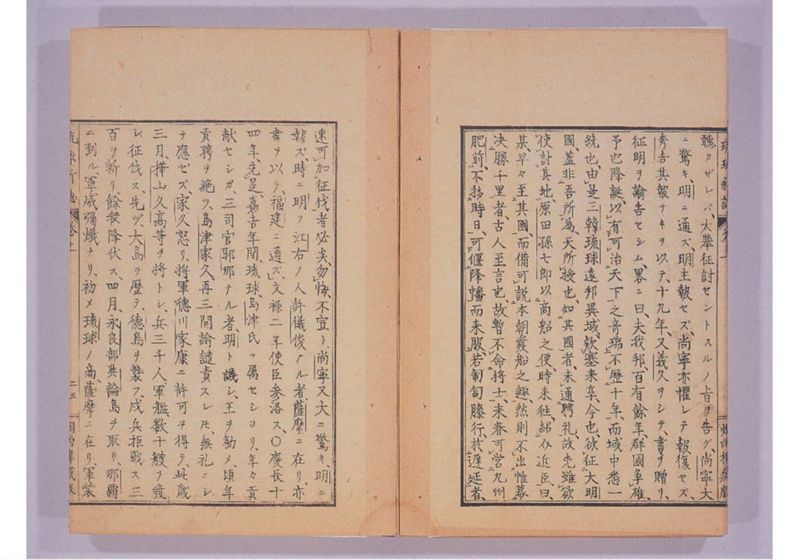 聽カザレバ、大擧征討セントスルノ旨ヲ告グ尚寧大
ニ驚キ、明ニ通ズ、明主報セズ、尚寧亦懼レテ報復セズ、
秀吉其報ナキヲ以テ、十九年、又義久ヲシテ、書ヲ贈リ、
征明ヲ諭告セシム、畧ニ曰、夫我邦百有餘年群國爭雄、
予也降誕、以有可治天下之奇瑞、不歷十年而域中悉一
統也、由是三韓琉球遠邦異域、款塞來享、今也欲征大明
國、蓋非吾所爲、天所授也、如其國者、未通聘礼、故先雖欲
使討其地、原田孫七郎以商船之便時來往、紹近臣曰、
某早々至其國、而備可說本朝發船之趣、然則不出帷幕
決勝千里者、古人至言也、故暫不命將士、來春可營九州
肥前、不移時日、可偃降幡而來服、若匍匐膝行於遲延者、
速可加征伐者必矣、勿悔、不宣ト、尚寧又大ニ驚キ、明ニ
報ズ時ニ明ノ江右ノ人許儀俊ナル者薩摩ニ在リ亦
書ヲ以テ、福建ニ通ズ、文祿二年使臣參洛ス、〇慶長十
四年、先是嘉吉年間琉球島津氏ニ属セシヨリ、年々貢
献セシガ、三司官耶那ナル者、明ト議シ、王ヲ勸メ頃年
貢聘ヲ絶ツ、島津家久再三開諭譴責スレ𪜈、無礼ニシ
テ應ゼズ、家久怒リ、將軍德川家康ニ許可ヲ得テ、此歳
三月、樺山久高等ヲ將トシ、兵三千人軍艦数十艘ヲ發
シ征伐ス、先ヅ大島ヲ歴テ、德島ヲ襲フ、戍兵拒戰ス三
百ヲ斬リ、餘衆降伏ス、四月、永良部與論島ヲ取リ、那覇
ニ到ル、軍威熾ナリ、初メ琉球ノ商薩摩ニ在リ、軍裝